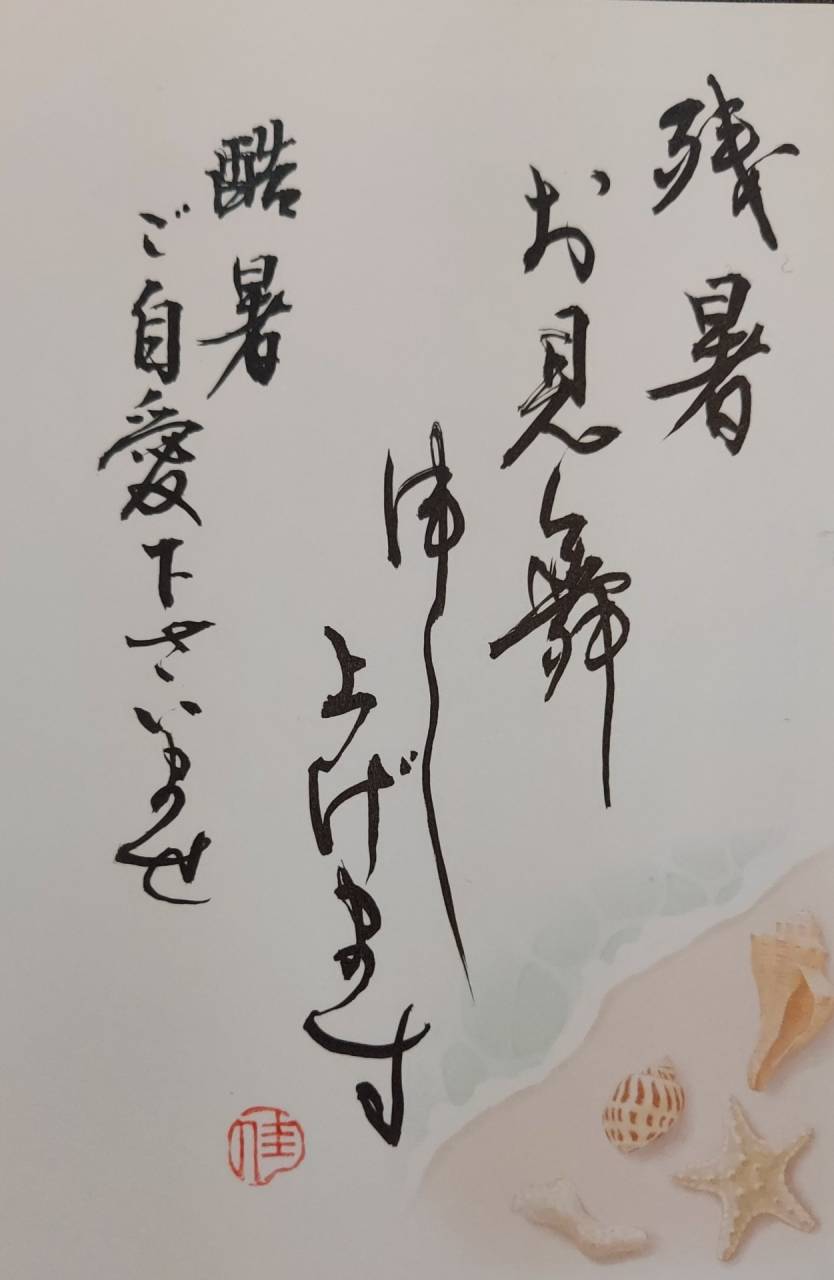 残暑
お見舞
申し
上げます
酷暑
ご自愛下さいませ
佳